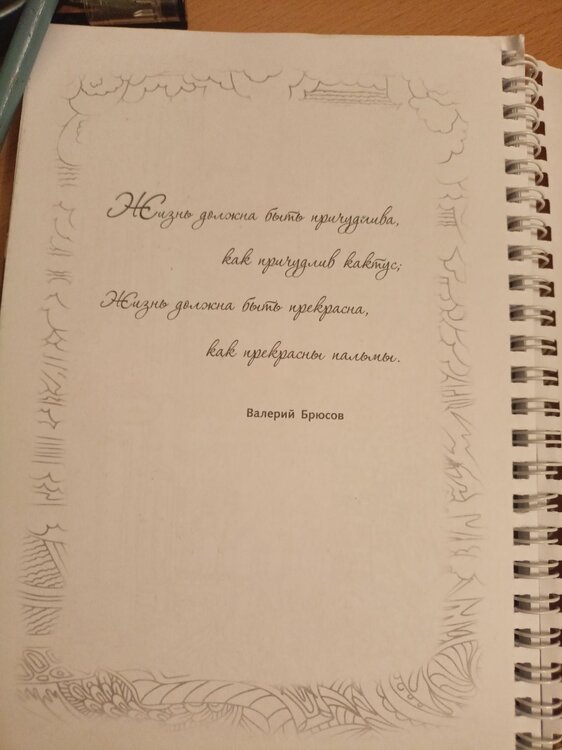 Жизнь должна быть причудлива,
как причудлив кактус;
Жизнь должна быть прекрасна,
как прекрасны пальмы.
Валерий Брюсов